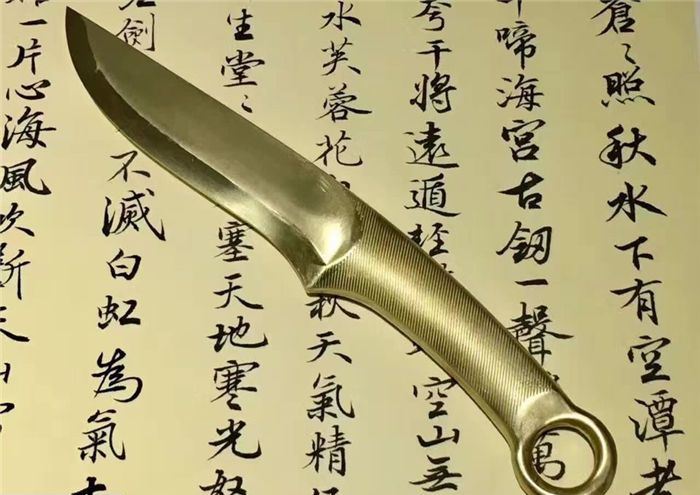 蒼〻照秋水下有空潭老
啼海宮古釼一聲萬
夸干將遠遁 空山無
水芙蓉花 秋天氣精
生堂〻 塞天地寒光怒
劍 不滅白虹為氣
一片心海風吹斷